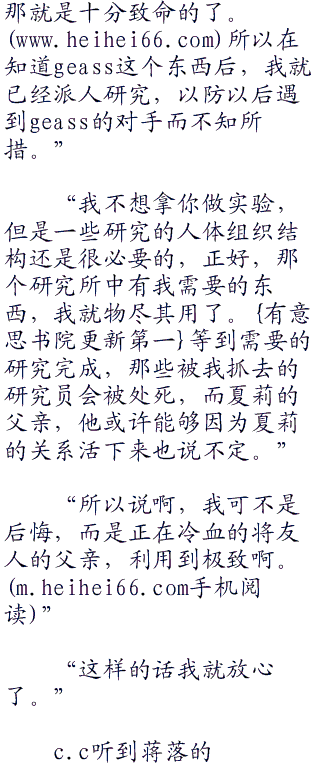 那就是十分致命的了。
(www.heihei66.com)所以在
知道geass这个东西后，我就
已经派人研究，以防以后遇
到geass的对手而不知所
措。”
“我不想拿你做实验，
但是一些研究的人体组织结
构还是很必要的，正好，那
个研究所中有我需要的东
西，我就物尽其用了。{有意
思书院更新第一}等到需要的
研究完成，那些被我抓去的
研究员会被处死，而夏莉的
父亲，他或许能够因为夏莉
的关系活下来也说不定。”
“所以说啊，我可不是
后悔，而是正在冷血的将友
人的父亲，利用到极致啊。
(m.heihei66.com手机阅
读)”
“这样的话我就放心
了。”
c.c听到蒋落的